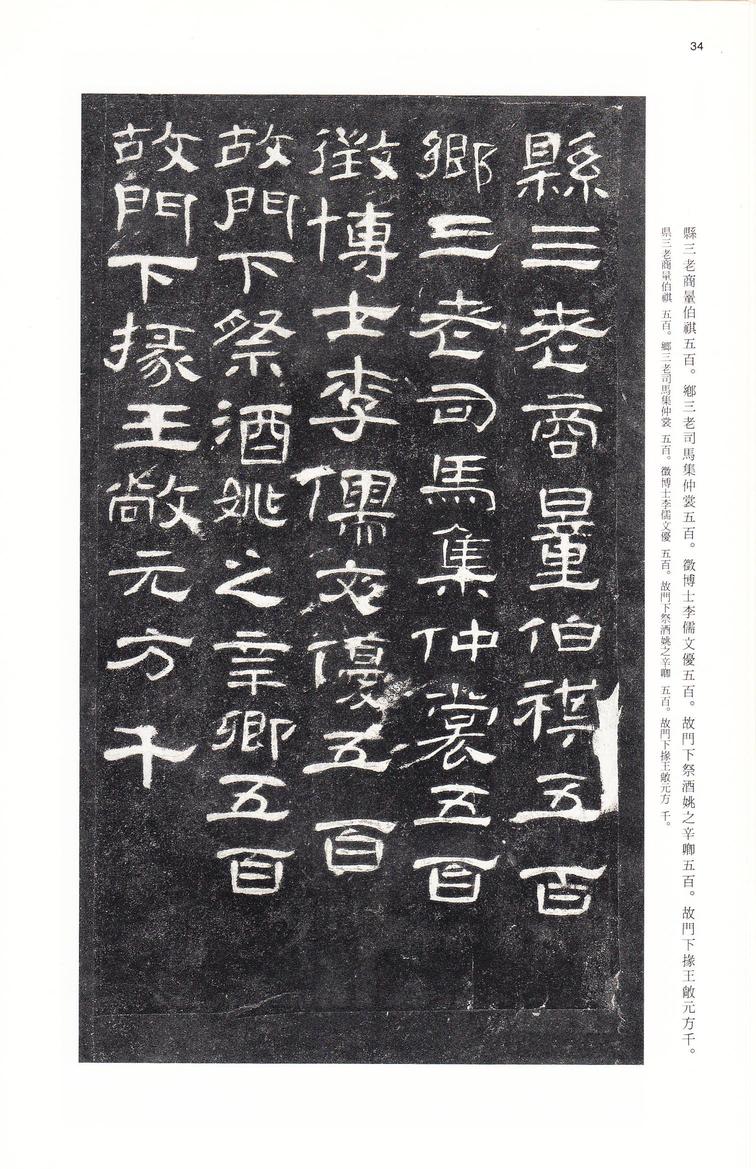 34
縣三老商量伯祺五百。鄉三老司馬集仲裳五百。徵博士李儒文優五百。故門下祭酒姚之辛卿五百。故門下掾王敞元方千。
県三老商量伯祺 五百。郷三老司馬集仲裳 五百。徴博士李儒文優 五百。故門下祭酒姚之辛卿 五百。故門下掾王敞元方 千。
縣三老商量伯祺五百
鄉三老司馬集仲裳五百
徵博士李儒文優五百
故門下祭酒姚之辛卿五百
故門下掾王敞元方千